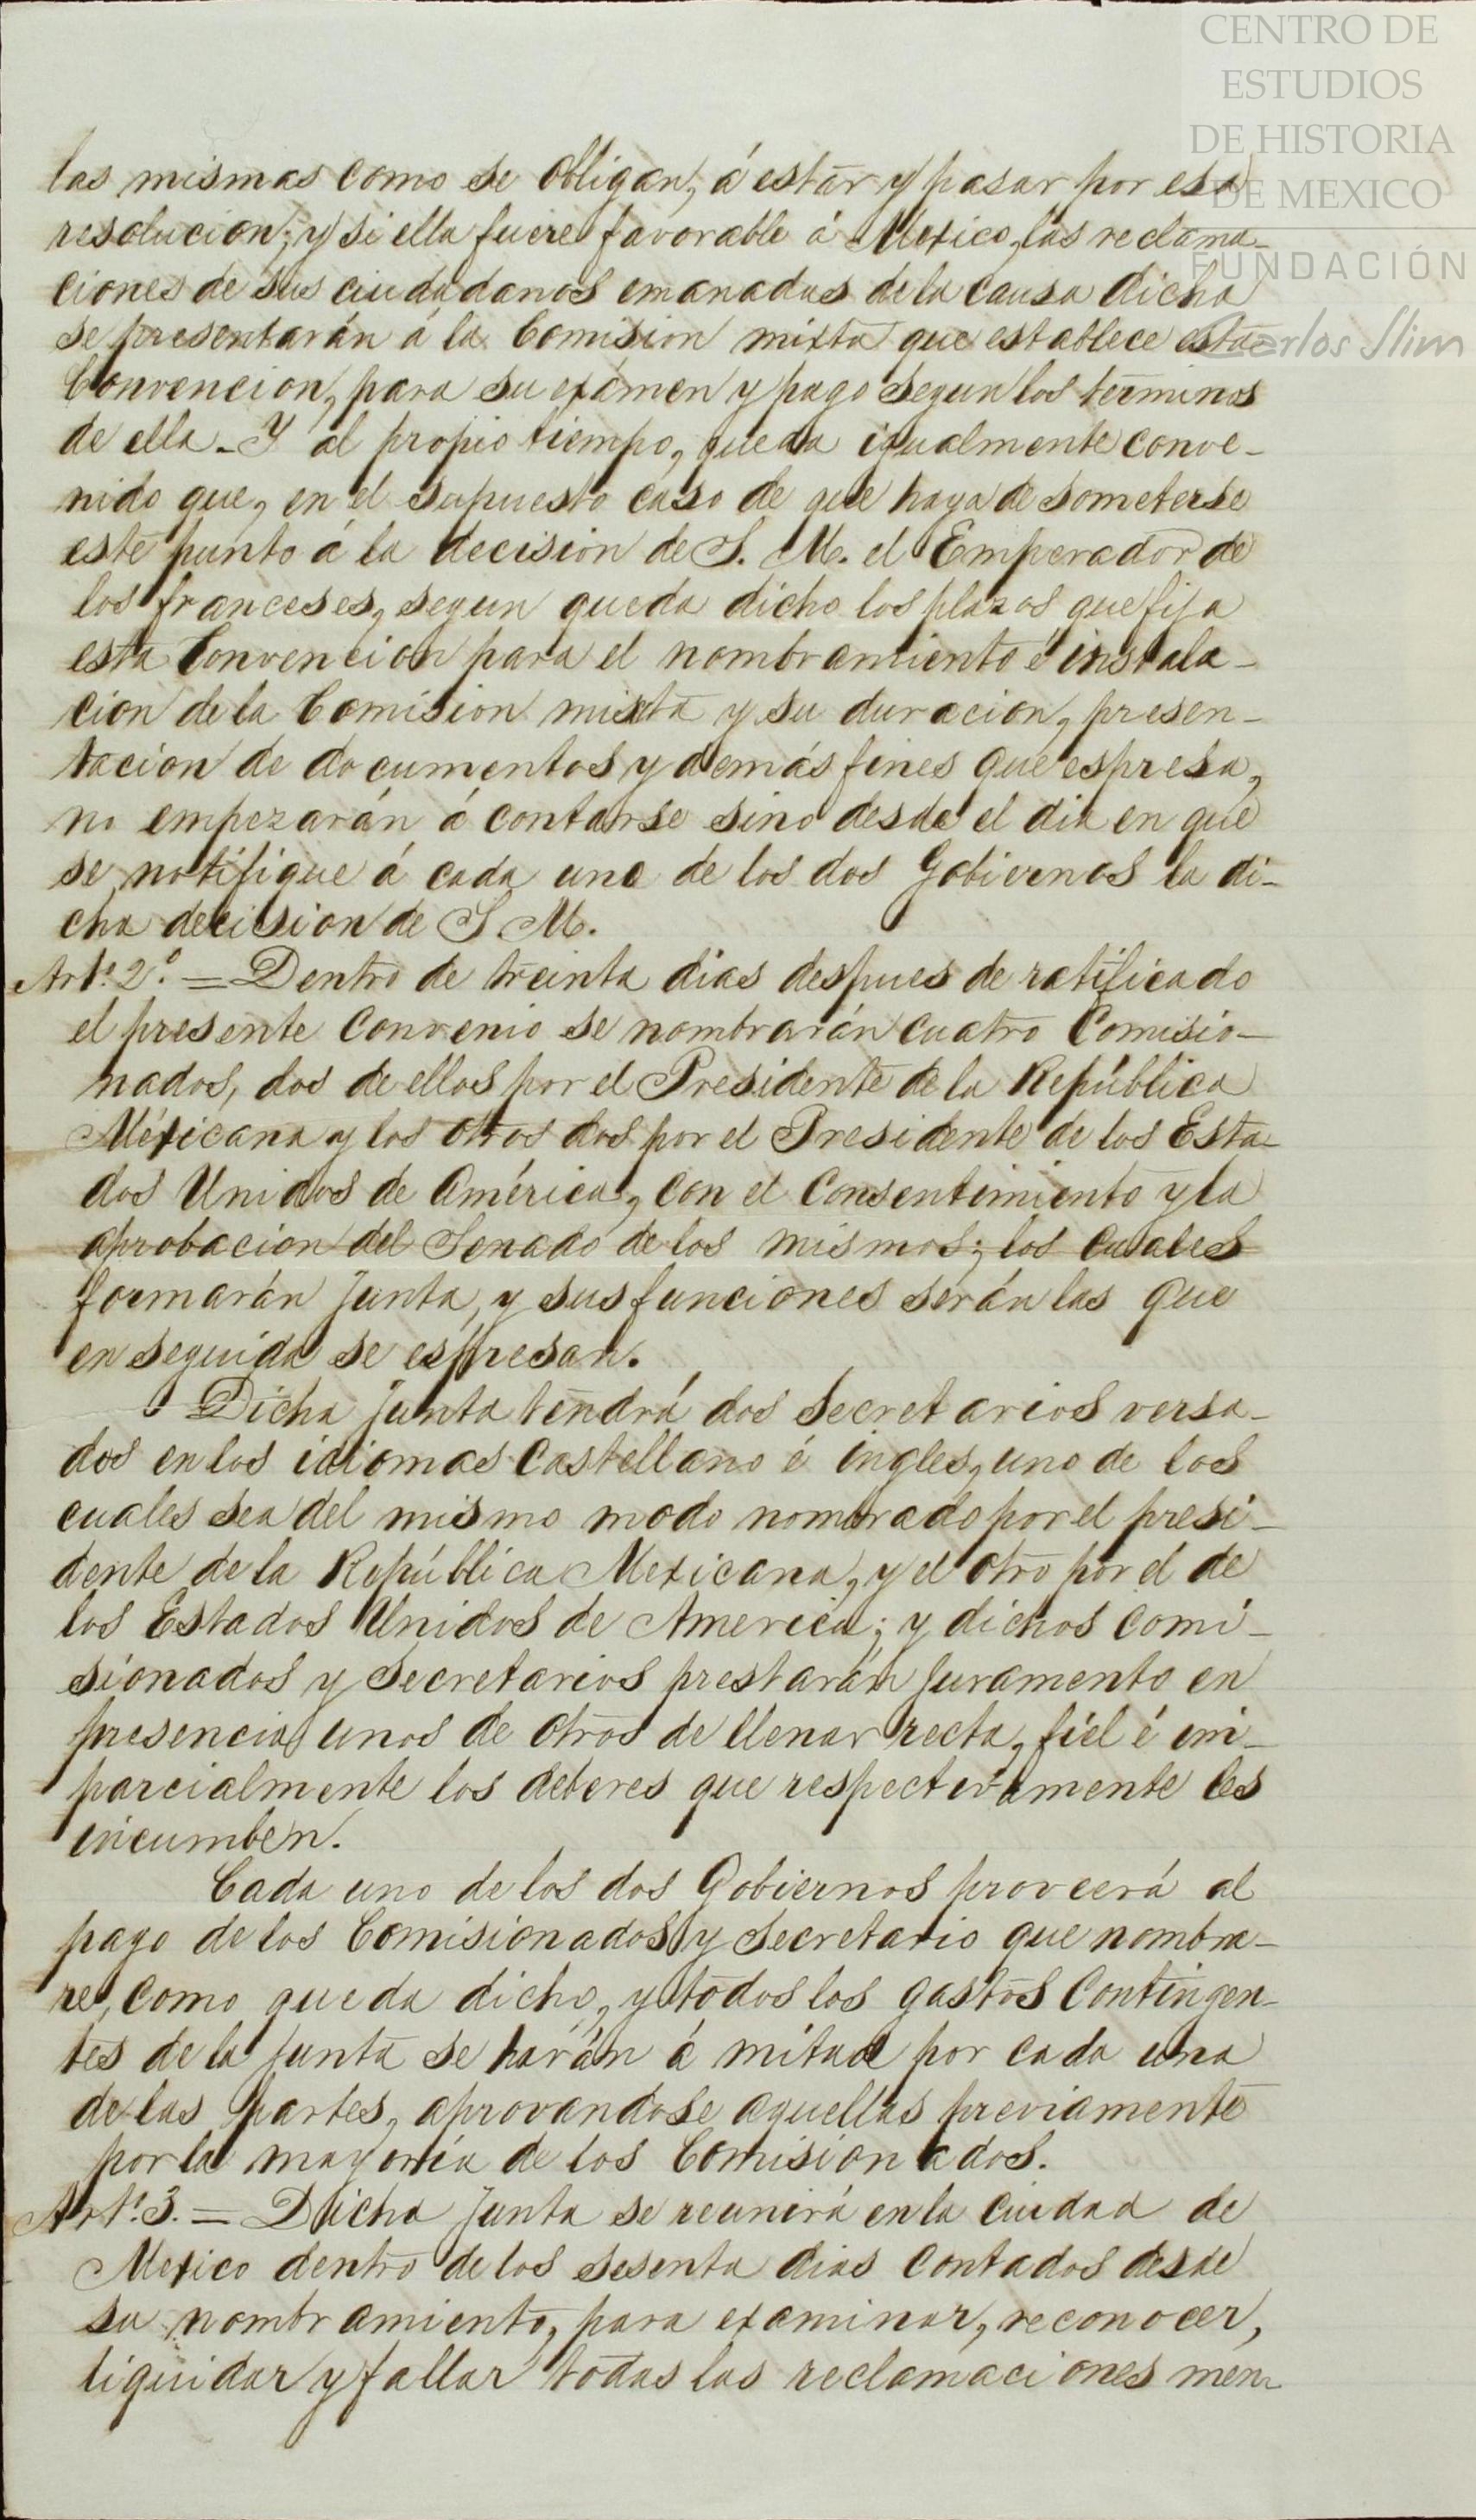 CENTRO DE
ESTUDIOS
DE HISTORIA
DE MEXICO
FUNDACIÓN
Carlos Slim
las mismas como se obligan, á estar y pasar por esa
resolucion; y si ella fuere favorable á Mexico, las reclama-
ciones de sus ciudadanos emanadas de la causa dicha
se presentarán á la Comision mixta que establece esta
Convencion, para su exámen y pago segun los terminos
de ella. Y al propio tiempo, queda igualmente conve-
nido que, en el supuesto caso de que haya de someterse
este punto á la decision de S. M. el Emperador de
los franceses, segun queda dicho los plazos que fija
esta Convencion para el nombramiento é instala-
cion de la Comision mixta y su duracion, presen-
tacion de documentos y demás fines que espresa,
no empezarán á contarse sino desde el dia en que
se notifique á cada uno de los dos Gobiernos la di-
cha decision de S M.
Art.º 2.º = Dentro de treinta dias despues de ratificado
el presente Convenio se nombrarán cuatro Comisio-
nados, dos de ellos por el Presidente de la República
Méxicana y los otros dos por el Presidente de los Esta-
dos Unidos de América, con el Consentimiento y la
aprobacion del Senado de los mismos; los cuales
formarán Junta, y sus funciones serán las que
en seguida se espresan.
Dicha Junta tendrá dos Secretarios versa-
dos en los idiomas Castellano é ingles, uno de los
cuales sea del mismo modo nombrado por el presi-
dente de la República Mexicana, y el otro por el de
los Estados Unidos de America; y dichos comi-
sionados y Secretarios prestarán Juramento en
presencia unos de otros de llenar recta, fiel é im-
parcialmente los deberes que respectivamente les
incumben.
Cada uno de los dos Gobiernos proveerá al
pago de los Comisionados y Secretario que nombra-
re, como queda dicho, y todos los gastos Contingen-
tes de la Junta se harán á mitad por cada una
de las partes, aprovandose aquellas previamente
por la mayoría de los Comisionados.
Art.º 3. = Dicha Junta se reunirá en la Ciudad de
Mexico dentro de los sesenta dias Contados desde
su nombramiento, para examinar, reconocer,
liquidar y fallar todas las reclamaciones men-